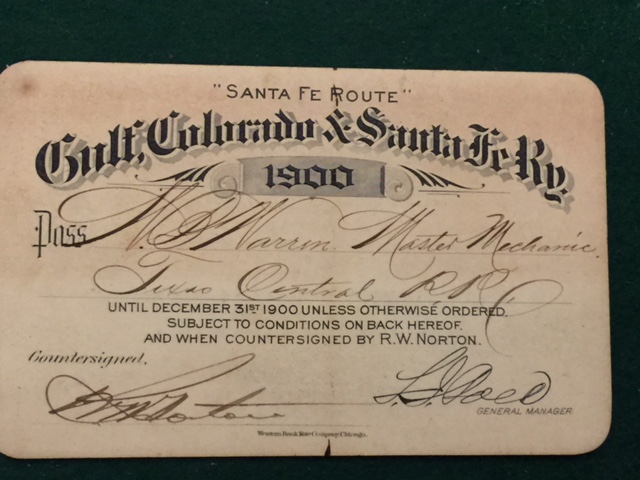 "SANTA FE ROUTE"
Gulf, Colorado & Santa Fe Ry.
1900
Pass W. B. Warren Master Mechanic.
Texas Central RR
UNTIL DECEMBER 31ST 1900 UNLESS OTHERWISE ORDERED.
SUBJECT TO CONDITIONS ON BACK HEREOF.
AND WHEN COUNTERSIGNED BY R.W. NORTON.
Countersigned.
R W Norton
GENERAL MANAGER
Western Bank Note Company, Chicago.